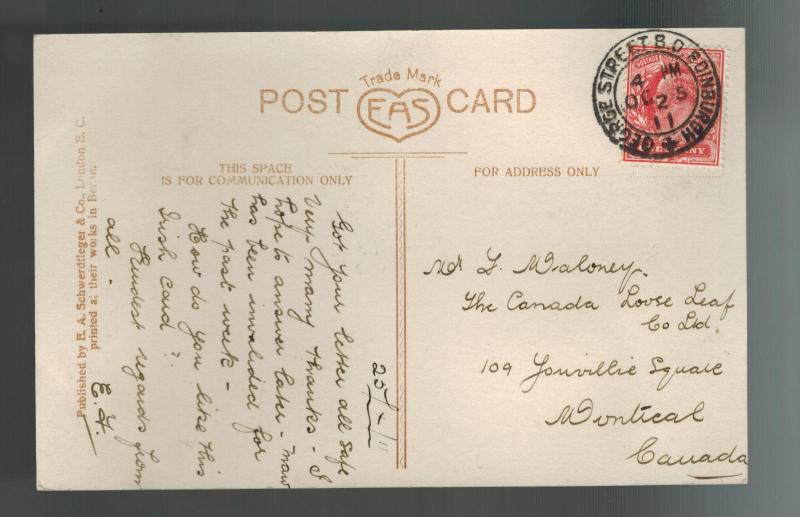 Trade Mark
POST EAS CARD
GEORGE STREET B.O. EDINBURGH
4 PM
OC 25
11
POSTAGE
THIS SPACE
IS FOR COMMUNICATION ONLY
FOR ADDRESS ONLY
25/x/11
Got your letter all safe
Very many thanks - I
hope to answer later -
has been invalided for
the past week -
How do you like this
Irish card?
Kindest regards from
all -
E. H.
Mr. F. Maloney.
The Canada Loose Leaf
Co Ltd.
109 Youvillie Square
Montreal
Canada
Published by E. A. Schwerdtfeger & Co., London E. C.
printed at their works in Berlin.